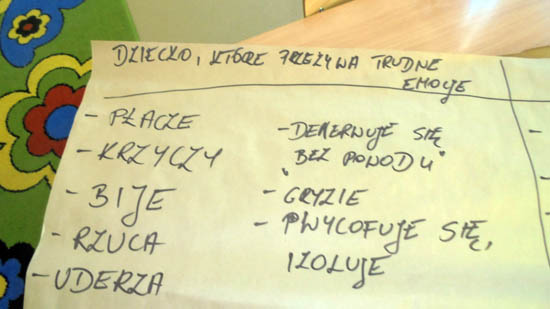 DZIECKO, KTÓRE PRZEŻYWA TRUDNE
EMOCJE
- PŁACZE
- KRZYCZY
- BIJE
- RZUCA
- UDERZA
- DENERWUJE SIĘ
"BEZ POWODU"
- GRYZIE
- WYCOFUJE SIĘ,
IZOLUJE